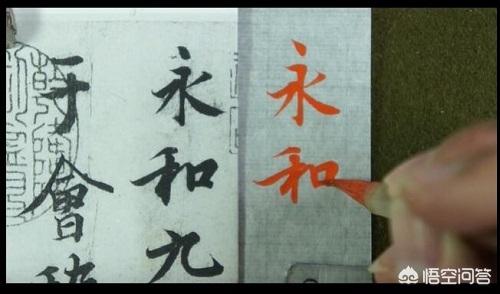 永和
永和九
于會
悟空问答